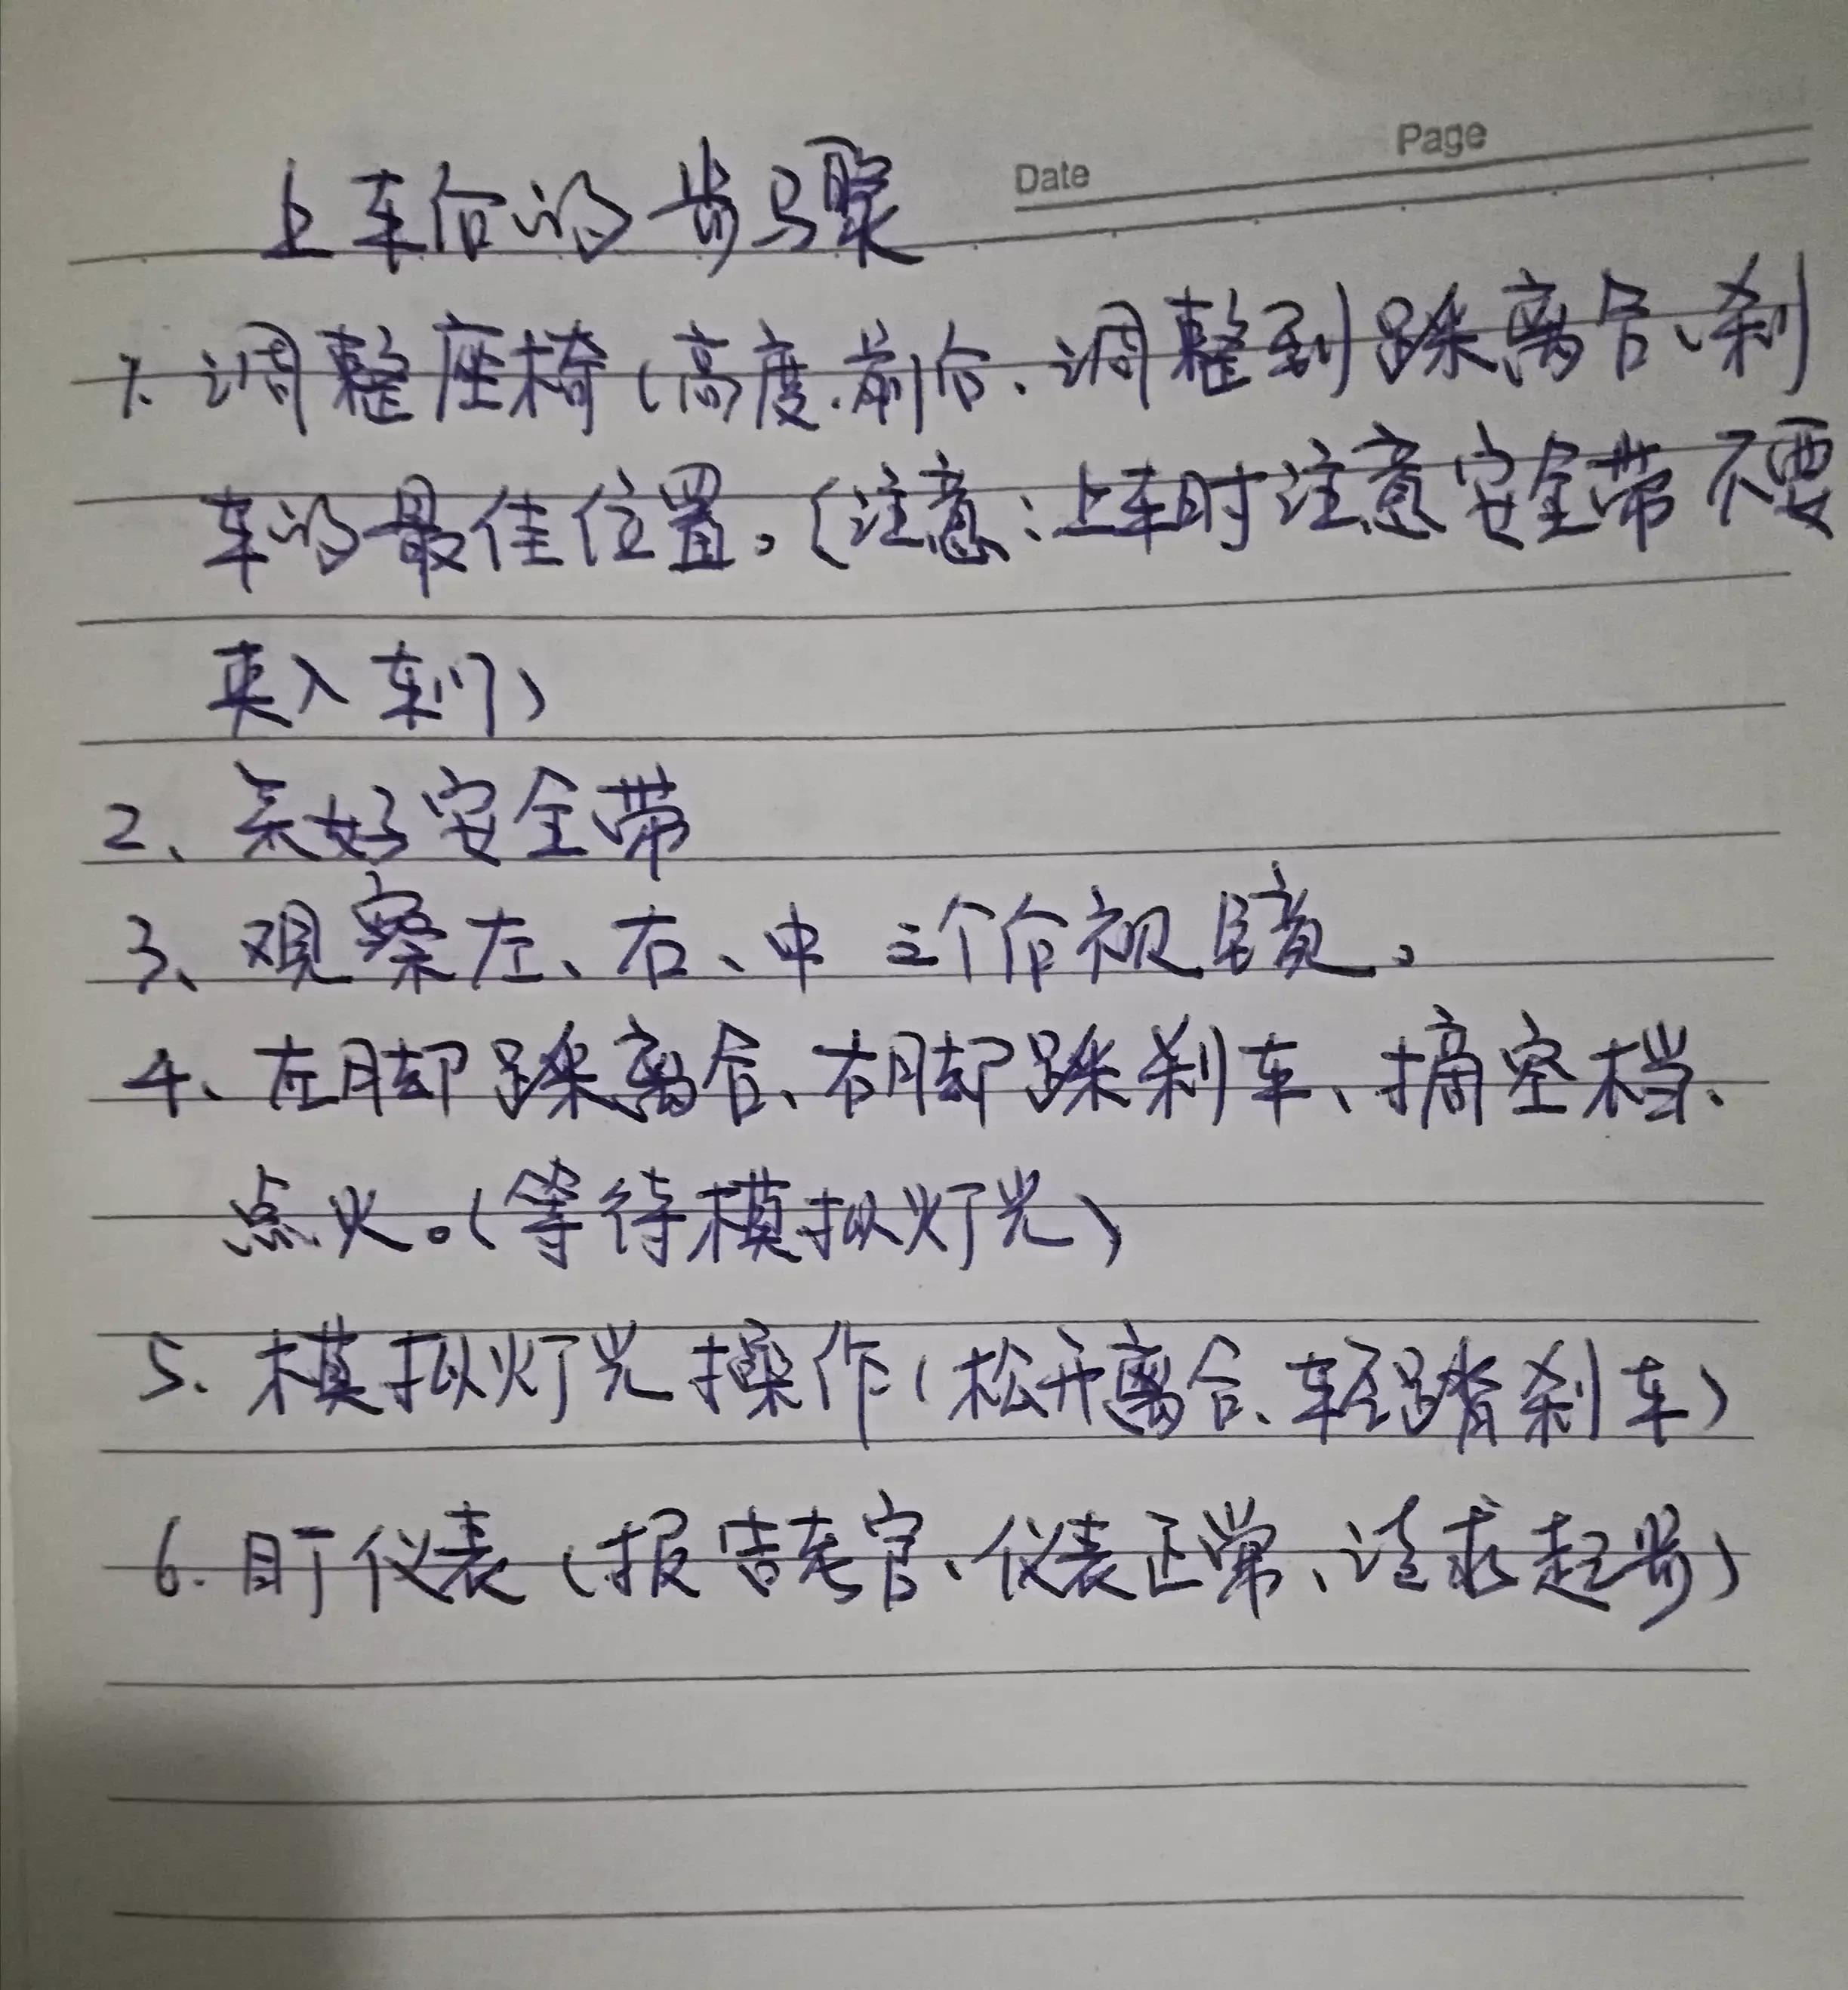 Date Page
上车后的步骤
1. 调整座椅(高度.前后、调整到踩离合、刹
车的最佳位置。(注意:上车时注意安全带不要
夹入车门)
2、系好安全带
3、观察左、右、中 三个后视镜。
4、左脚踩离合、右脚踩刹车、摘空档、
点火。(等待模拟灯光)
5. 模拟灯光操作(松开离合、轻踏刹车)
6. 盯仪表(报告考官、仪表正常、请求起步)